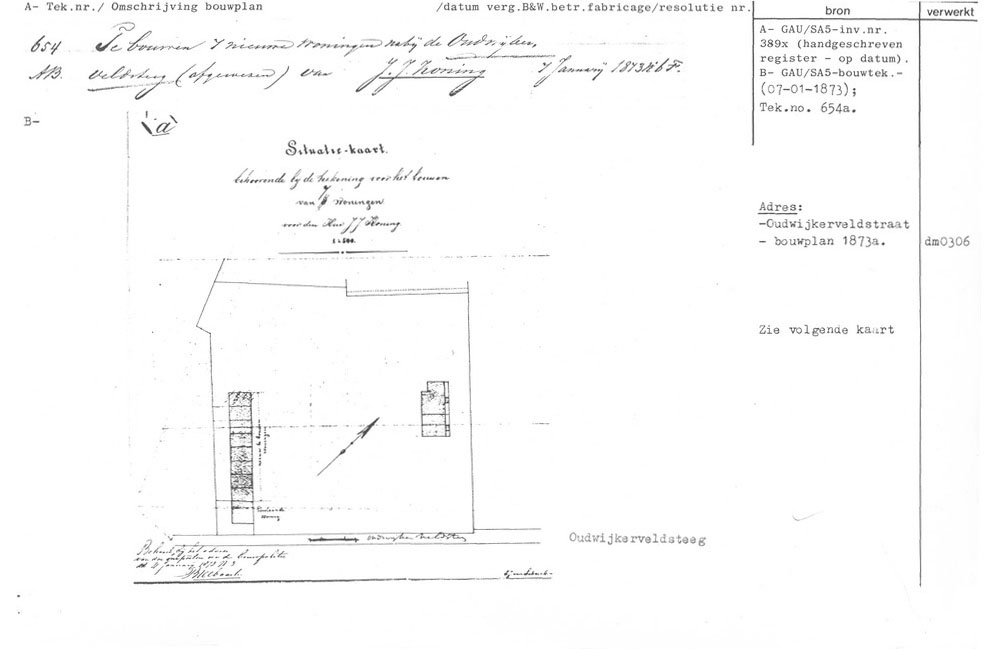 A- Tek.nr./ Omschrijving bouwplan /datum verg.B&W.betr.fabricage/resolutie nr.
bron
verwerkt
654 Te bouwen 7 nieuwe woningen nabij de Oudwijker
AB. veldsteeg (afgewezen) van J. J. Koning 7 Januarij 1873
A- GAU/SA5-inv.nr.
389x (handgeschreven
register - op datum).
B- GAU/SA5-bouwtek.-
(07-01-1873);
Tek.no. 654a.
B-
a
Situatie-kaart.
behoorende bij de teekening voor het bouwen
van 7 woningen
voor den Heer J J Koning
1 à 500.
Adres:
-Oudwijkerveldstraat
- bouwplan 1873a.
dm0306
Zie volgende kaart
oudwijker veldsteeg
Oudwijkerveldsteeg
Behoort bij het